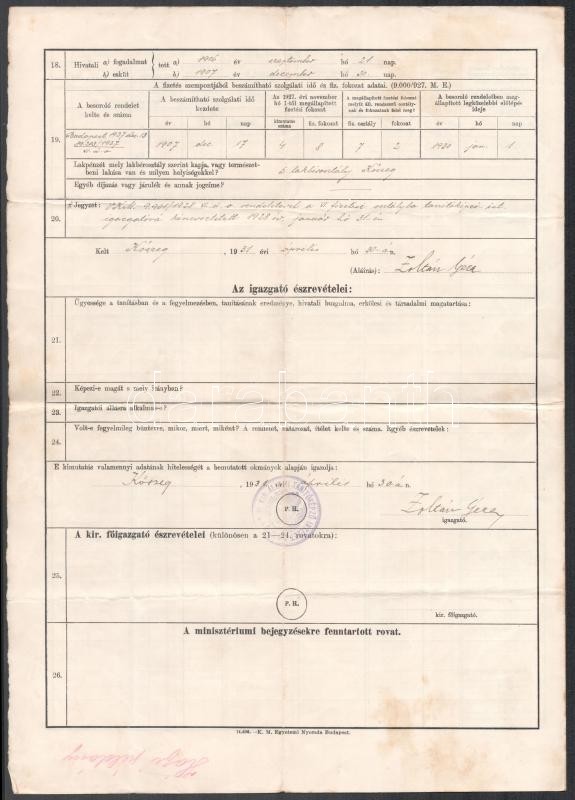 18.
Hivatali a) fogadalmat tett a) 1916 év szeptember hó 21 nap.
b) esküt b) 1907 év december hó 20 nap.
A fizetés szempontjából beszámítható szolgálati idő és fiz. fokozat adatai. (9.000/927. M. E.)
19.
A besoroló rendelet kelte és száma
A beszámítható szolgálati idő kezdete
Az 1927. évi november hó 1-től megállapított fizetési fokozat
A megállapított fizetési fokozat melyik áll. rendszerű osztálynak és fokozatnak felel meg?
A besoroló rendeletben megállapított legközelebbi előlépés ideje
év hó nap kimutatás száma fiz. fokozat fiz. osztály fokozat év hó nap
Budapest 1927 dec. 13
1907 dec 17 4 8 7 2 1930 jan. 1
Lakpénzét mely lakbérosztály szerint kapja, vagy természetbeni lakása van és milyen helyiségekkel?
lakbérosztály Kőszeg
Egyéb díjazás vagy járulék és annak jogcíme?
20.
Jegyzet: 1928 rendeletével a fizetési osztályba tanítóképző int. igazgatóvá kineveztetett 1928 év január hó 31-én
Kelt Kőszeg , 1931 évi április hó 30-án.
(Aláírás): Zoltán Géza
Az igazgató észrevételei:
21.
Ügyessége a tanításban és a fegyelmezésben, tanításának eredménye, hivatali buzgalma, erkölcsi és társadalmi magatartása:
22.
Képezi-e magát s mely irányban?
23.
Igazgatói állásra alkalmas-e?
24.
Volt-e fegyelmileg büntetve, mikor, miért, miként? A rendelet, határozat, ítélet kelte és száma. Egyéb észrevételek:
E kimutatás valamennyi adatának hitelességét a bemutatott okmányok alapján igazolja:
Kőszeg , 1931 évi április hó 30 án.
P. H.
Zoltán Géza
igazgató.
25.
A kir. főigazgató észrevételei (különösen a 21—24. rovatokra):
P. H.
kir. főigazgató.
26.
A minisztériumi bejegyzésekre fenntartott rovat.
K. M. Egyetemi Nyomda Budapest.
példány
darabanth